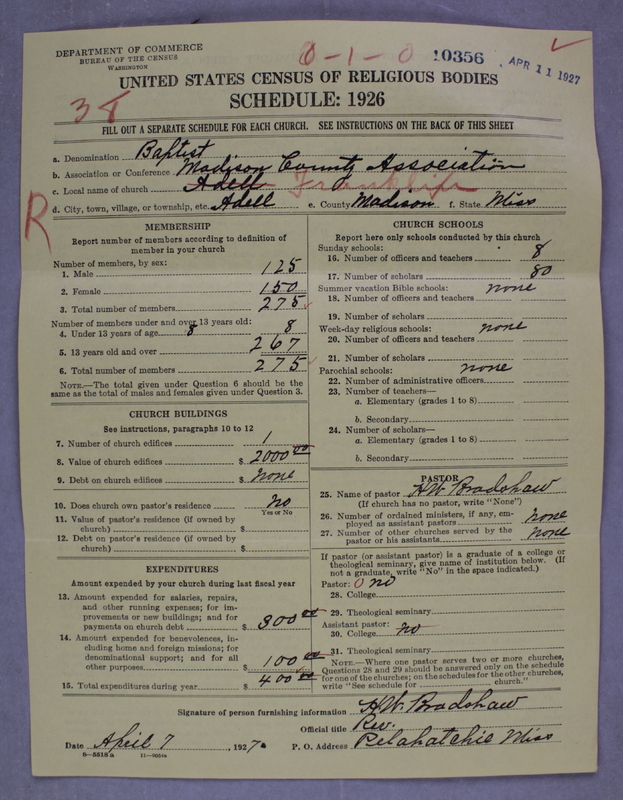 DEPARTMENT OF COMMERCE
BUREAU OF THE CENSUS
WASHINGTON
0-1-0
10356
APR 11 1927
UNITED STATES CENSUS OF RELIGIOUS BODIES
38
SCHEDULE: 1926
FILL OUT A SEPARATE SCHEDULE FOR EACH CHURCH. SEE INSTRUCTIONS ON THE BACK OF THIS SHEET
a. Denomination Baptist
b. Association or Conference Madison County Association
c. Local name of church Adell
d. City, town, village, or township, etc. Adell e. County Madison f. State Miss
R
MEMBERSHIP
Report number of members according to definition of
member in your church
Number of members, by sex:
1. Male 125
2. Female 150
3. Total number of members 275
Number of members under and over 13 years old:
4. Under 13 years of age 8 8
5. 13 years old and over 267
6. Total number of members 275
NOTE.—The total given under Question 6 should be the
same as the total of males and females given under Question 3.
CHURCH BUILDINGS
See instructions, paragraphs 10 to 12
7. Number of church edifices 1
8. Value of church edifices $ 2000 00
9. Debt on church edifices $ none
10. Does church own pastor's residence no
Yes or No
11. Value of pastor's residence (if owned by
church) $
12. Debt on pastor's residence (if owned by
church) $
EXPENDITURES
Amount expended by your church during last fiscal year
13. Amount expended for salaries, repairs,
and other running expenses; for im-
provements or new buildings; and for
payments on church debt $ 300 00
14. Amount expended for benevolences, in-
cluding home and foreign missions; for
denominational support; and for all
other purposes $ 100 00
15. Total expenditures during year $ 400 00
CHURCH SCHOOLS
Report here only schools conducted by this church
Sunday schools:
16. Number of officers and teachers 8
17. Number of scholars 80
Summer vacation Bible schools: none
18. Number of officers and teachers
19. Number of scholars
Week-day religious schools: none
20. Number of officers and teachers
21. Number of scholars
Parochial schools: none
22. Number of administrative officers
23. Number of teachers—
a. Elementary (grades 1 to 8)
b. Secondary
24. Number of scholars—
a. Elementary (grades 1 to 8)
b. Secondary
PASTOR
25. Name of pastor H.W. Bradshaw
(If church has no pastor, write "None")
26. Number of ordained ministers, if any, em-
ployed as assistant pastors none
27. Number of other churches served by the
pastor or his assistants none
If pastor (or assistant pastor) is a graduate of a college or
theological seminary, give name of institution below. (If
not a graduate, write "No" in the space indicated.)
Pastor: 0 no
28. College
29. Theological seminary
Assistant pastor: no
30. College
31. Theological seminary
NOTE.—Where one pastor serves two or more churches,
Questions 28 and 29 should be answered only on the schedule
for one of the churches; on the schedules for the other churches,
write "See schedule for church."
Signature of person furnishing information H.W. Bradshaw
Official title Rev.
Date April 7, 1927. P. O. Address Pelahatchie Miss